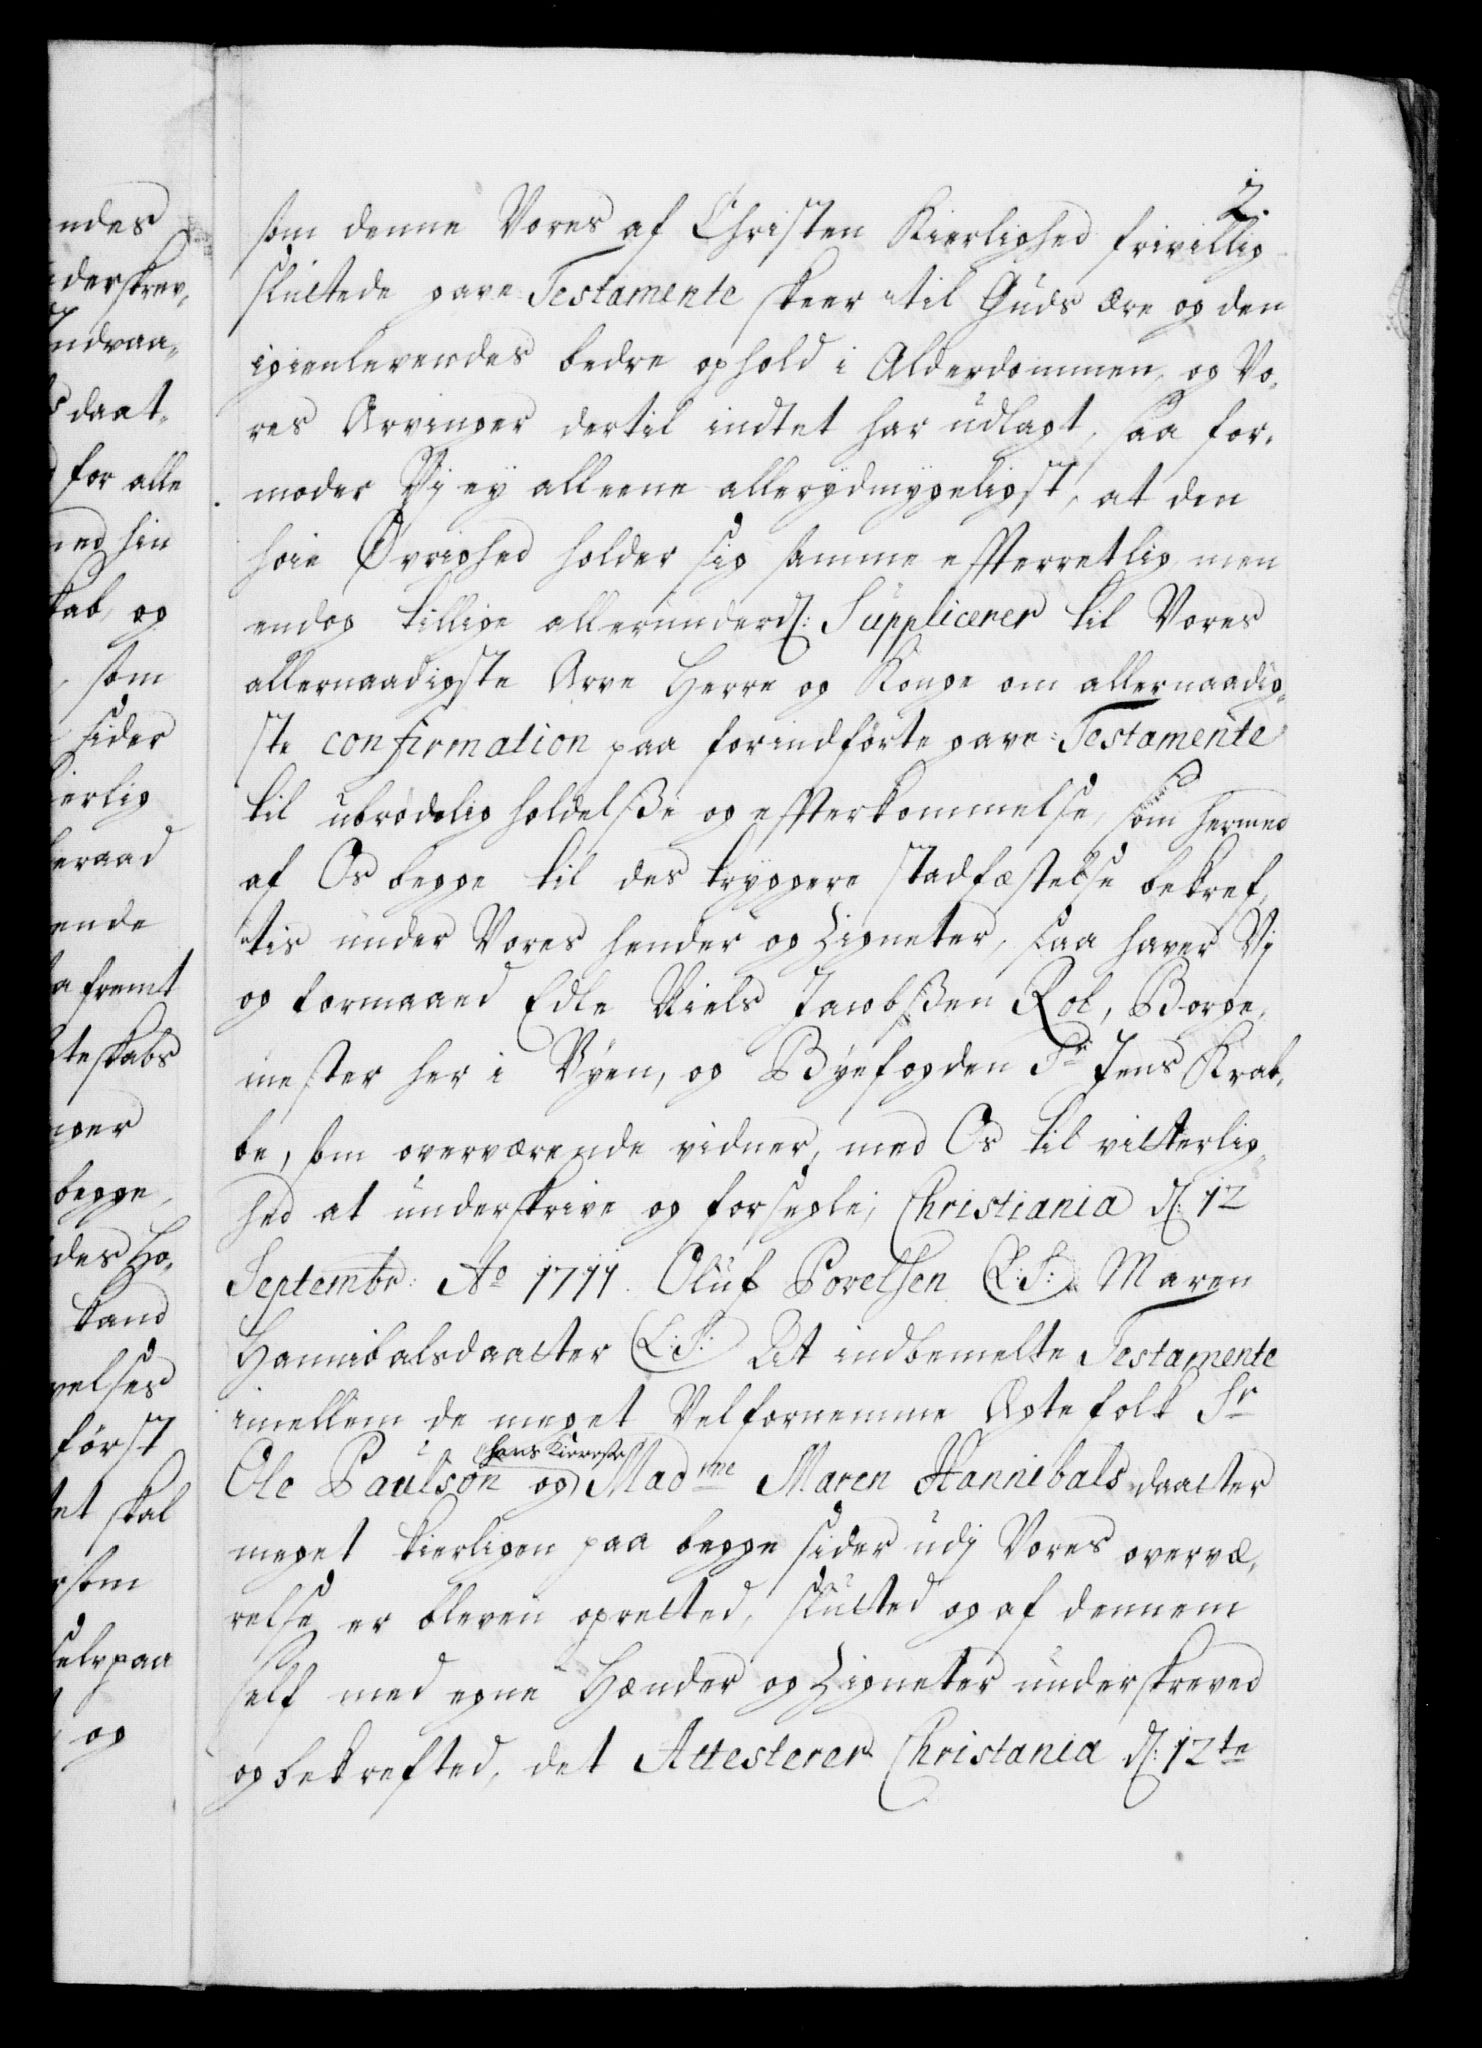 2.
som denne Vores af Christen Kierlighed frivillig
sluttede gave Testamente skeer til Guds ære og den
igienlevendes bedre ophold i Alderdommen, og Vo,
res Arvinger dertil indtet har udlagt, saa for,
moder Vj ey alleene allerydmygeligst, at den
høie Øvrighed holder sig samme efterretlig men
endog tillige allerunderd: Supplicerer til Vores
allernaadigste Arve Herre og Konge om allernaadig,
ste confirmation paa forindførte gave-Testamente
til ubrødelig holdelsße og efterkommelse, som hermed
af Os begge til des tryggere stadfæstelse bekref,
tis under Vores hender og Zigneter, saa haver Vj
og formaaed Edle Niels Jacobßen Rol, Borge,
mester her i Byen, og Byefogden Sr Jens Krab,
be, som overværende vidner, med Os til vitterlig,
hed at underskrive og forsegle, Christiania d: 12
Septembr: Ao 1711. Oluf Povelsen (L:S:) Maren
Hannibalsdaatter (L:S:) At indbemelte Testamente
imellem de meget Velfornemme Ægtefolk Sr
Ole Paulson og hans Kiereste Madme Maren Hannibals daatter
meget kierligen paa begge sider udj Vores overvæ,
relse er bleven opretted, slutted og af dennem
self med egne Hænder og Zigneter underskreved
og bekrefted, det Attesterer Christania d: 12te
ndes
derskrev,
ndvaa,
daat,
for alle
hin
og
som
sider
erlig
ende
fremt
begge,
kand
først
skal
som
og